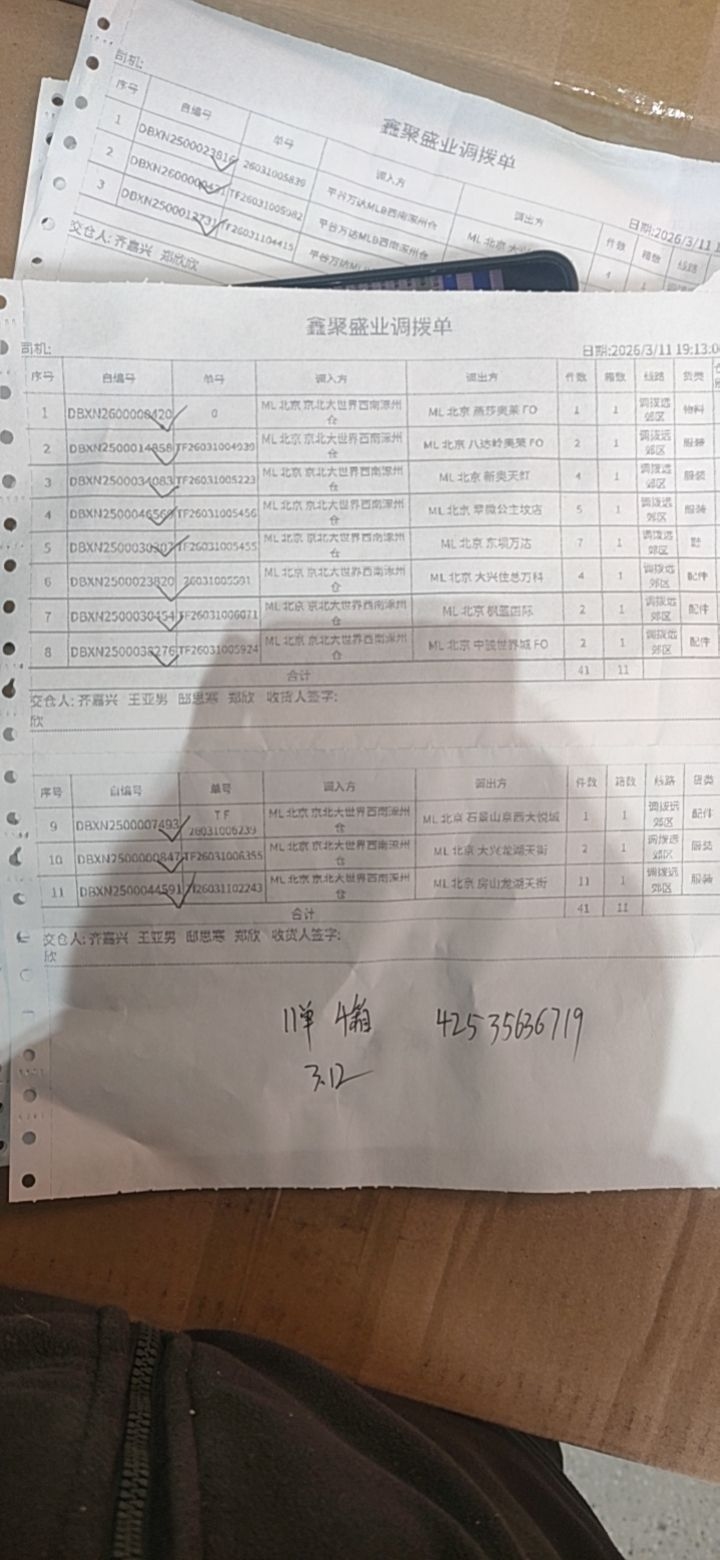 司机:
鑫聚盛业调拨单
日期:2026/3/11
序号 自编号 单号 调入方 调出方 件数 箱数 线路
1 DBXN2500023816 26031005839 平谷万达MLB西南涿州仓 ML 北京
2 DBXN2600000421 TF26031005982 平谷万达MLB西南涿州仓
3 DBXN2500012731 TF26031104415 平谷万达ML
交仓人: 齐嘉兴 郑欣欣
鑫聚盛业调拨单
司机: 日期:2026/3/11 19:13:0
序号 自编号 单号 调入方 调出方 件数 箱数 线路 货类
1 DBXN2600000420 0 ML 北京 京北大世界西南涿州仓 ML 北京 燕莎奥莱 FO 1 1 调拨远郊区 物料
2 DBXN2500014858 TF26031004939 ML 北京 京北大世界西南涿州仓 ML 北京 八达岭奥莱 FO 2 1 调拨远郊区 服装
3 DBXN2500034083 TF26031005223 ML 北京 京北大世界西南涿州仓 ML 北京 新奥天虹 4 1 调拨远郊区 服装
4 DBXN2500046560 TF26031005456 ML 北京 京北大世界西南涿州仓 ML 北京 翠微公主坟店 5 1 调拨远郊区 服装
5 DBXN2500030307 TF26031005455 ML 北京 京北大世界西南涿州仓 ML 北京 东坝万达 7 1 调拨远郊区 鞋
6 DBXN2500023820 26031005591 ML 北京 京北大世界西南涿州仓 ML 北京 大兴住总万科 4 1 调拨远郊区 配件
7 DBXN2500030454 TF26031006071 ML 北京 京北大世界西南涿州仓 ML 北京 枫蓝国际 2 1 调拨远郊区 配件
8 DBXN2500038276 TF26031005924 ML 北京 京北大世界西南涿州仓 ML 北京 中骏世界城 FO 2 1 调拨远郊区 配件
合计 41 11
交仓人: 齐嘉兴 王亚男 邸思寒 郑欣 收货人签字:
欣
序号 自编号 单号 调入方 调出方 件数 箱数 线路 货类
9 DBXN2500007493 TF 26031006239 ML 北京 京北大世界西南涿州仓 ML 北京 石景山京西大悦城 1 1 调拨远郊区 配件
10 DBXN2500000847 TF26031006355 ML 北京 京北大世界西南涿州仓 ML 北京 大兴龙湖天街 2 1 调拨远郊区 服装
11 DBXN2500044591 TF26031102243 ML 北京 京北大世界西南涿州仓 ML 北京 房山龙湖天街 11 1 调拨远郊区 服装
合计 41 11
交仓人: 齐嘉兴 王亚男 邸思寒 郑欣 收货人签字:
欣
11单 4箱 42535636719
3.12